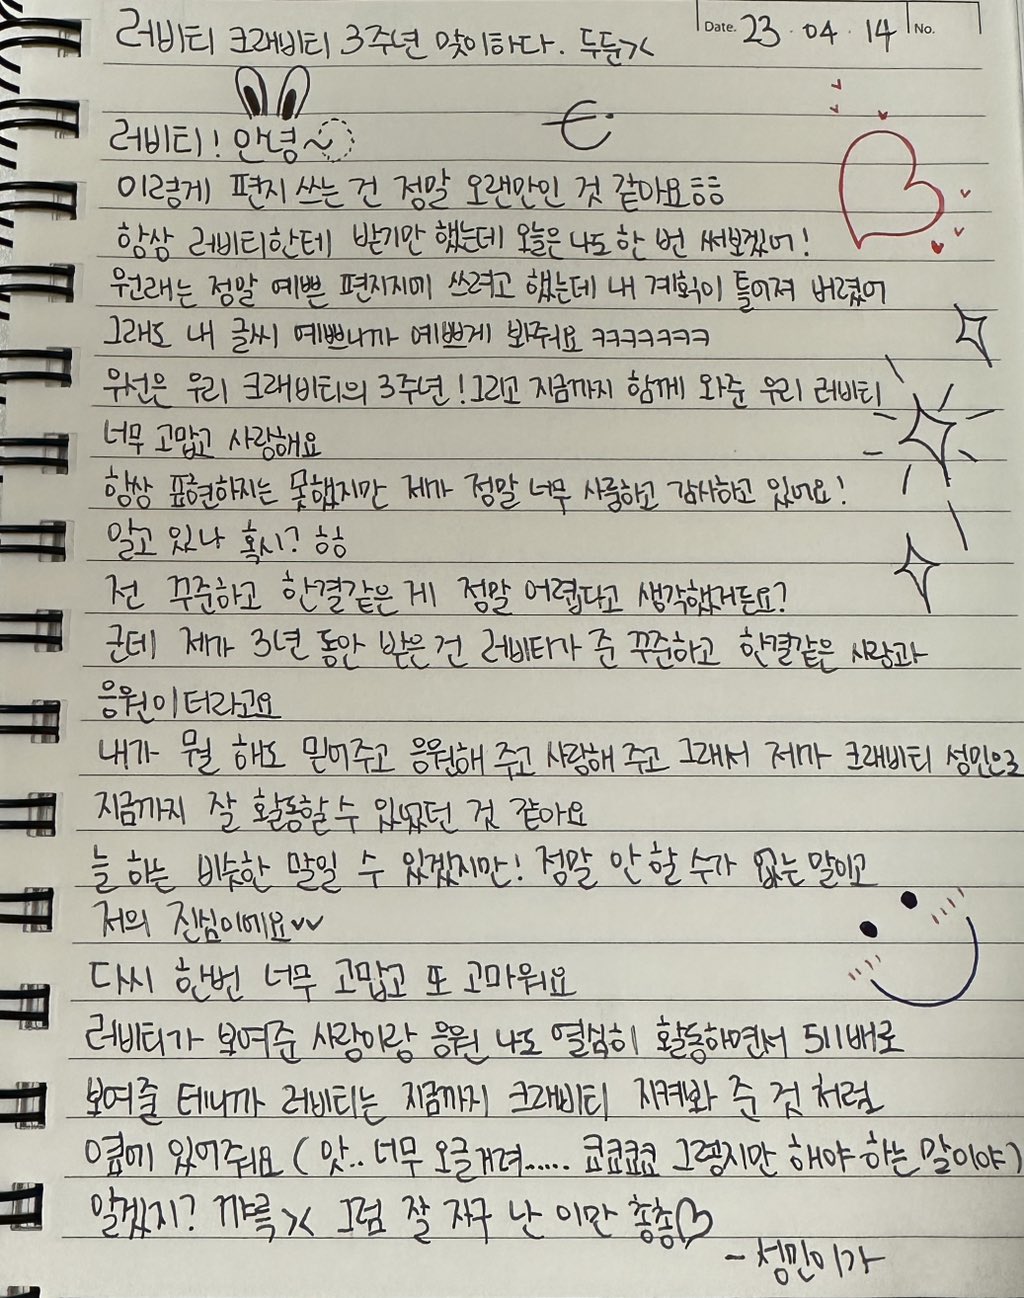 러비티 크래비티 3주년 맞이하다. 두둔><
Date. 23 · 04 · 14 No.
러비티! 안녕~
이렇게 편지 쓰는 건 정말 오랜만인 것 같아요 ㅎㅎ
항상 러비티한테 받기만 했는데 오늘은 나도 한 번 써보겠어!
원래는 정말 예쁜 편지지에 쓰려고 했는데 내 계획이 틀어져 버렸어
그래도 내 글씨 예쁘니까 예쁘게 봐줘요 ㅋㅋㅋㅋㅋㅋㅋ
우선은 우리 크래비티의 3주년! 그리고 지금까지 함께 와준 우리 러비티
너무 고맙고 사랑해요
항상 표현하지는 못했지만 제가 정말 너무 사릉하고 감사하고 있어요!
알고 있나 혹시? ㅎㅎ
전 꾸준하고 한결같은 게 정말 어렵다고 생각했거든요?
근데 제가 3년 동안 받은 건 러비티가 준 꾸준하고 한결같은 사랑과
응원이더라고요
내가 뭘 해도 믿어주고 응원해 주고 사랑해 주고 그래서 제가 크래비티 성민으로
지금까지 잘 활동할 수 있었던 것 같아요
늘 하는 비슷한 말일 수 있겠지만! 정말 안 할 수가 없는 말이고
저의 진심이에요
다시 한번 너무 고맙고 또 고마워요
러비티가 보여준 사랑이랑 응원 나도 열심히 활동하면서 511배로
보여줄 테니까 러비티는 지금까지 크래비티 지켜봐 준 것 처럼
옆에 있어줘요 (앗.. 너무 오글거려..... 쿄쿄쿄쿄 그렇지만 해야 하는 말이야)
알겠지? 꺄륵>< 그럼 잘 자구 난 이만 총총♡
- 성민이가